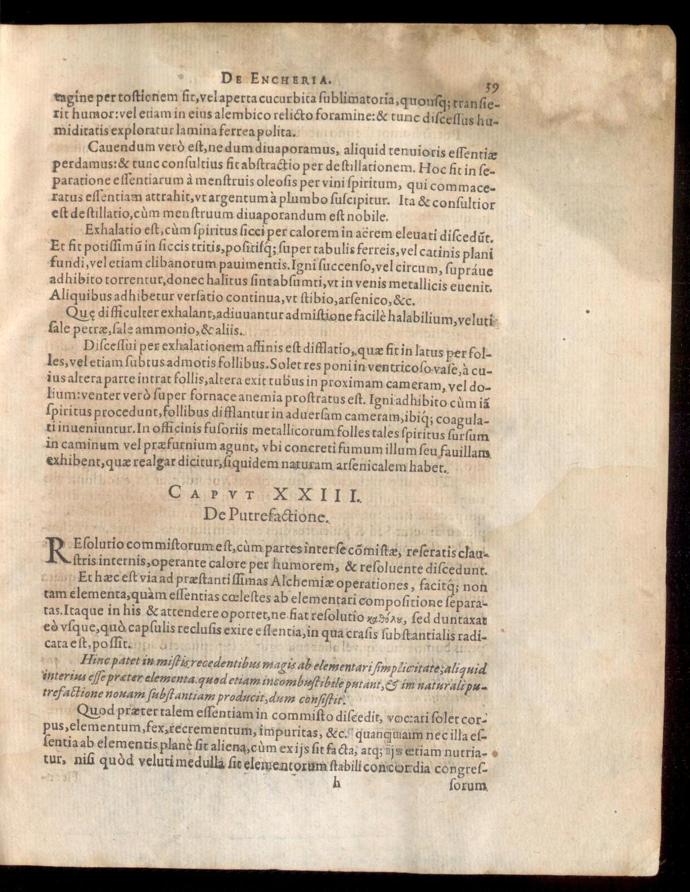 DE ENCHERIA.
39
tagine per tostionem fit, vel aperta cucurbita sublimatoria, quousq; transie-
rit humor: vel etiam in eius alembico relicto foramine: & tunc discessus hu-
miditatis exploratur lamina ferrea polita.
Cauendum verò est, ne dum diuaporamus, aliquid tenuioris essentiæ
perdamus: & tunc consultius fit abstractio per destillationem. Hoc fit in se-
paratione essentiarum à menstruis oleosis per vini spiritum, qui commace-
ratus essentiam attrahit, vt argentum à plumbo suscipitur. Ita & consultior
est destillatio, cùm menstruum diuaporandum est nobile.
Exhalatio est, cùm spiritus sicci per calorem in aërem eleuati discedũt.
Et fit potissimũ in siccis tritis, positisq; super tabulis ferreis, vel catinis plani
fundi, vel etiam clibanorum pauimentis. Igni succenso, vel circum, supráue
adhibito torrentur, donec halitus sint absumti, vt in venis metallicis euenit.
Aliquibus adhibetur versatio continua, vt stibio, arsenico, &c.
Quę difficulter exhalant, adiuuantur admistione facilè halabilium, veluti
sale petræ, sale ammonio, & aliis.
Discessui per exhalationem affinis est difflatio, quæ fit in latus per fol-
les, vel etiam subtus admotis follibus. Solet res poni in ventricoso vase, à cu-
ius altera parte intrat follis, altera exit tubus in proximam cameram, vel do-
lium: venter verò super fornace anemia prostratus est. Igni adhibito cùm iã
spiritus procedunt, follibus difflantur in aduersam cameram, ibiq; coagula-
ti inueniuntur. In officinis fusoriis metallicorum folles tales spiritus sursum
in caminum vel præfurnium agunt, vbi concreti fumum illum seu fauillam
exhibent, quæ realgar dicitur, siquidem naturam arsenicalem habet.
CAPVT XXIII.
De Putrefactione.
REsolutio commistorum est, cùm partes inter se cõmistæ, reseratis clau-
stris internis, operante calore per humorem, & resoluente discedunt.
Et hæc est via ad præstantissimas Alchemiæ operationes, facitq; non
tam elementa, quàm essentias cœlestes ab elementari compositione separa-
tas. Itaque in his & attendere oportet, ne fiat resolutio καθόλου, sed duntaxat
eò vsque, quò capsulis reclusis exire essentia, in qua crasis substantialis radi-
cata est, possit.
Hinc patet in mistis recedentibus magis ab elementari simplicitate, aliquid
interius esse præter elementa. quod etiam incombustibile putant, & in naturali pu-
trefactione nouam substantiam producit, dum consistit.
Quod præter talem essentiam in commisto discedit, vocari solet cor-
pus, elementum, fex, recrementum, impuritas, &c. quanquam nec illa es-
sentia ab elementis planè sit aliena, cùm ex ijs sit facta, atq; ijs etiam nutria-
tur, nisi quòd veluti medulla sit elementorum stabili concordia congres-
h
sorum